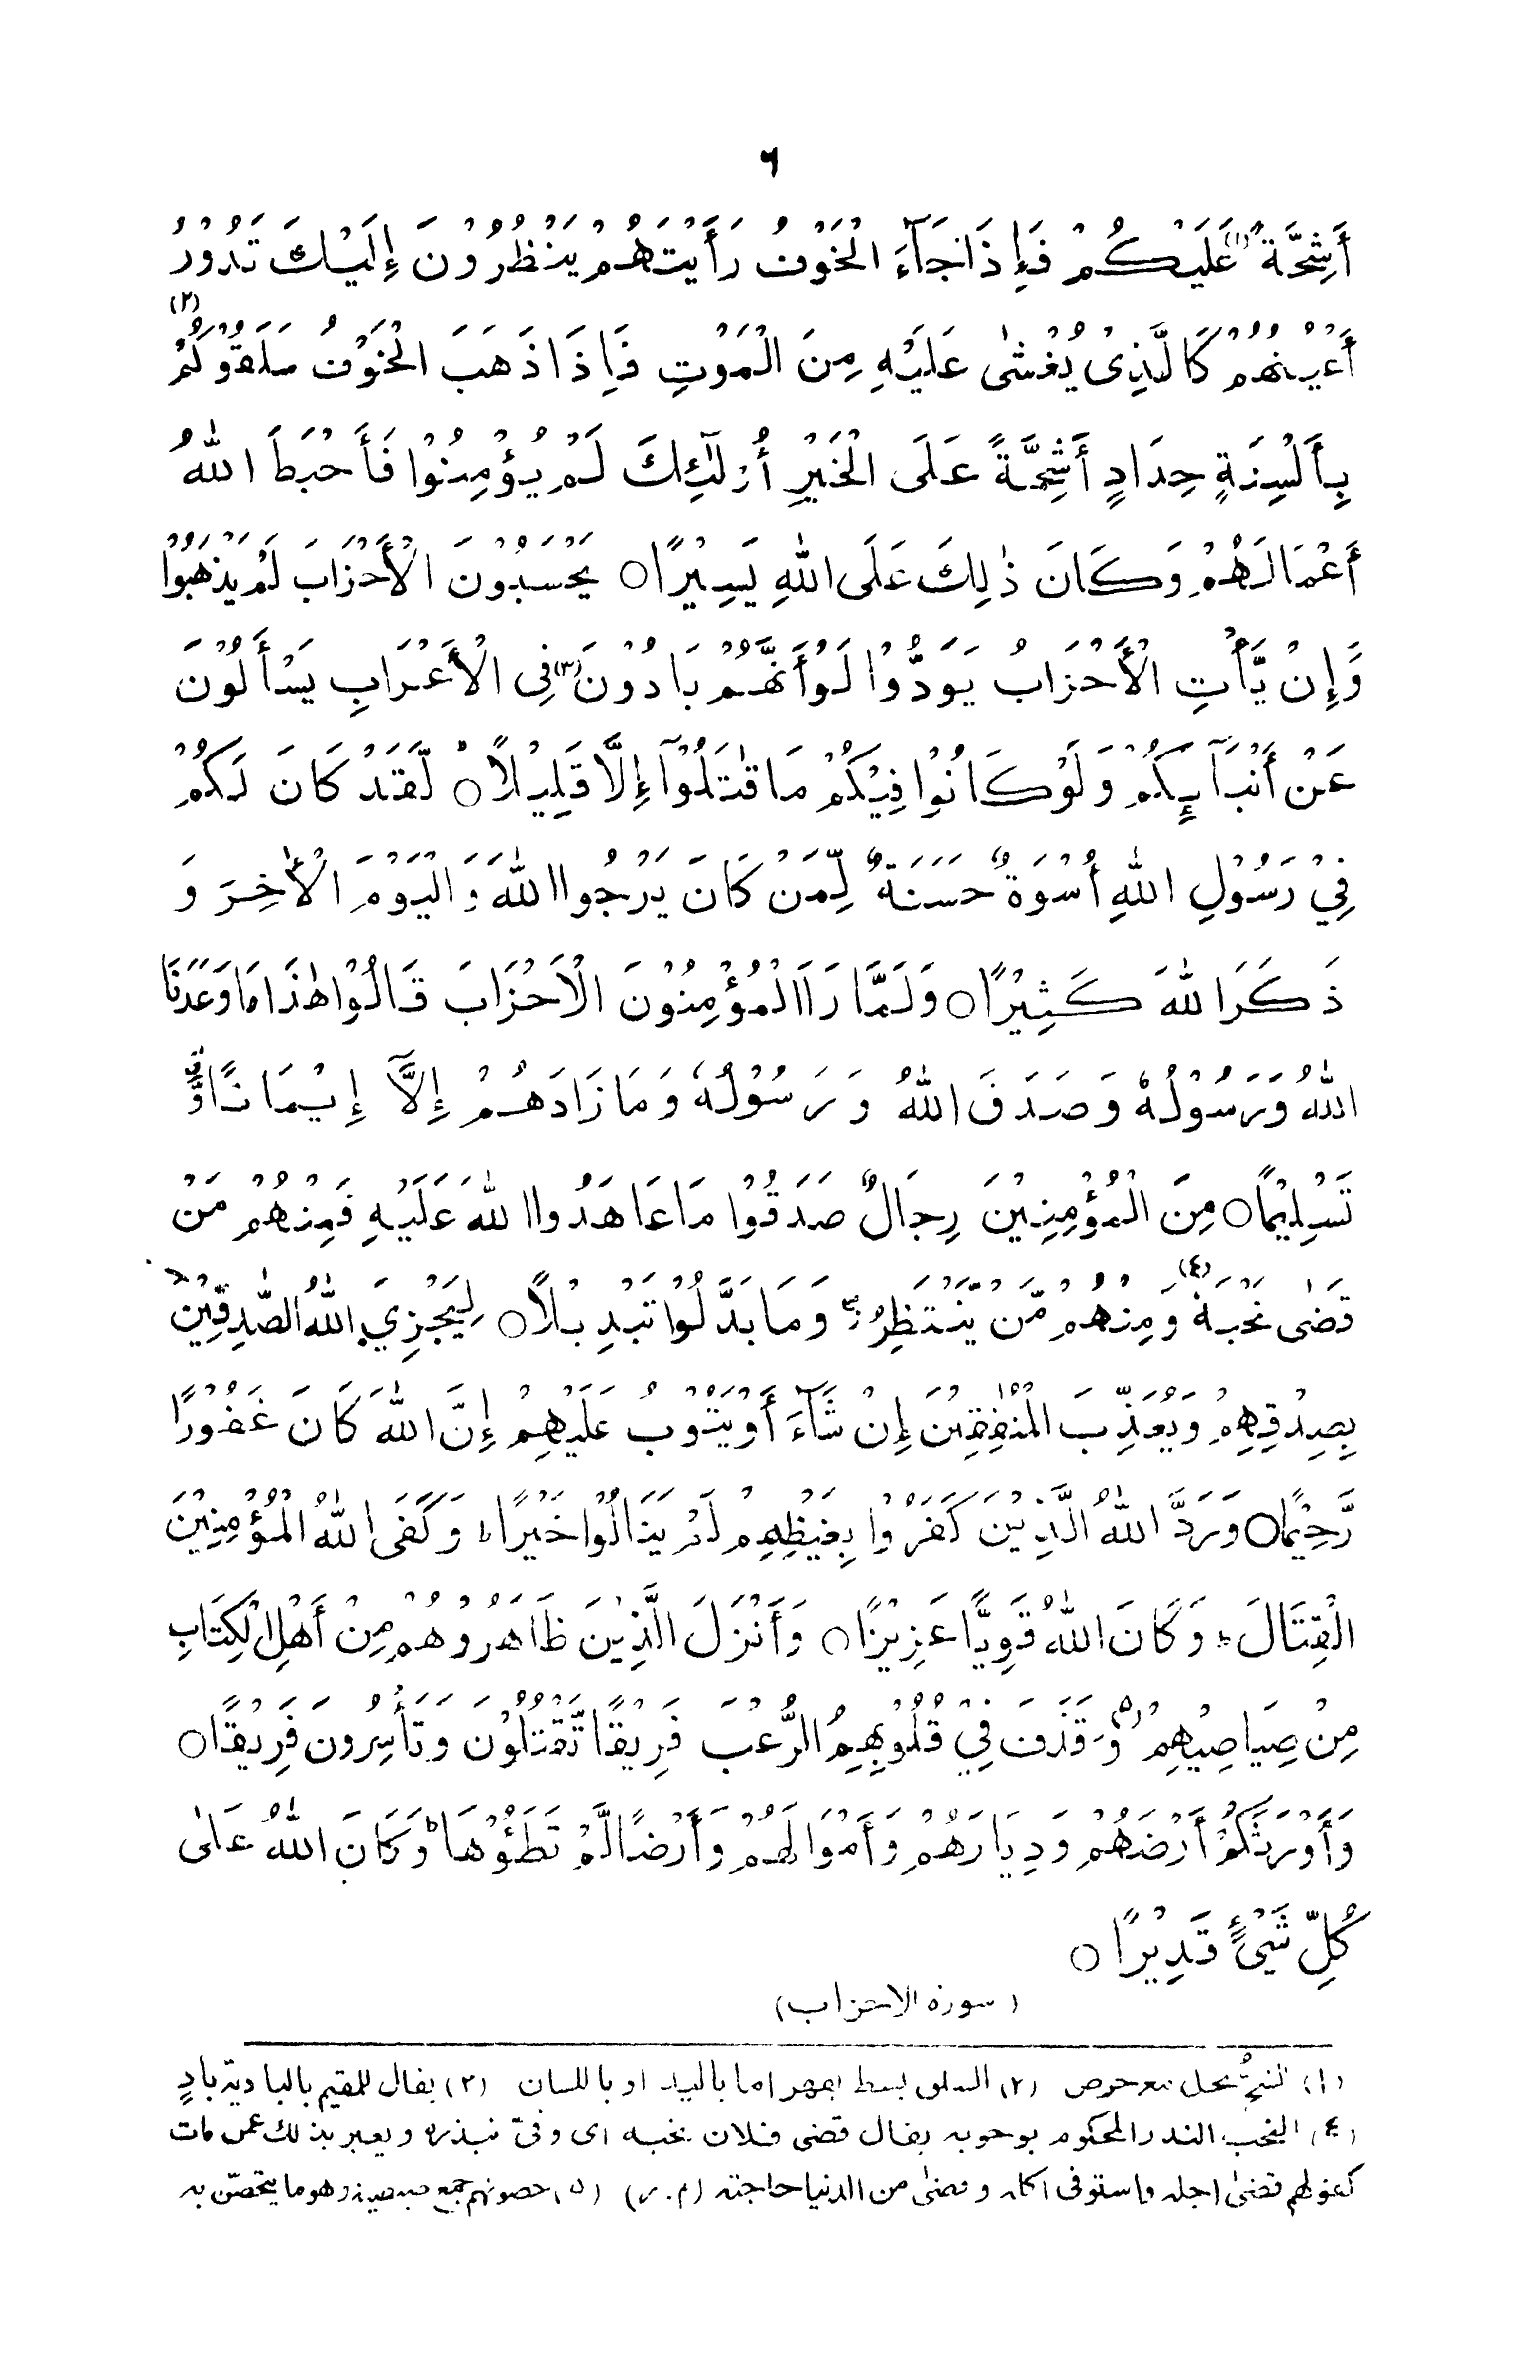 ٦
أَشِحَّةً (١) عَلَيْكُمْ فَإِذَا جَآءَ الْخَوْفُ رَأَيْتَهُمْ يَنْظُرُوْنَ إِلَيْكَ تَدُوْرُ
أَعْيُنُهُمْ كَالَّذِىْ يُغْشٰى عَلَيْهِ مِنَ الْمَوْتِ فَإِذَا ذَهَبَ الْخَوْفُ سَلَقُوْكُمْ (٢)
بِأَلْسِنَةٍ حِدَادٍ أَشِحَّةً عَلَى الْخَيْرِ أُولٰٓئِكَ لَمْ يُؤْمِنُوْا فَأَحْبَطَ اللهُ
أَعْمَالَهُمْ وَكَانَ ذٰلِكَ عَلَى اللهِ يَسِيْرًا ○ يَحْسَبُوْنَ الْأَحْزَابَ لَمْ يَذْهَبُوْا
وَإِنْ يَّأْتِ الْأَحْزَابُ يَوَدُّوْا لَوْ أَنَّهُمْ بَادُوْنَ (٣) فِى الْأَعْرَابِ يَسْأَلُوْنَ
عَنْ أَنْبَآئِكُمْ وَلَوْ كَانُوْا فِيْكُمْ مَا قٰتَلُوْآ إِلَّا قَلِيْلًا ○ لَقَدْ كَانَ لَكُمْ
فِيْ رَسُوْلِ اللهِ أُسْوَةٌ حَسَنَةٌ لِّمَنْ كَانَ يَرْجُوا اللهَ وَالْيَوْمَ الْاٰخِرَ وَ
ذَكَرَ اللهَ كَثِيْرًا ○ وَلَمَّا رَاَ الْمُؤْمِنُوْنَ الْأَحْزَابَ قَالُوْا هٰذَا مَا وَعَدَنَا
اللهُ وَرَسُوْلُهٗ وَصَدَقَ اللهُ وَرَسُوْلُهٗ وَمَا زَادَهُمْ إِلَّآ إِيْمَانًا وَّ
تَسْلِيْمًا ○ مِنَ الْمُؤْمِنِيْنَ رِجَالٌ صَدَقُوْا مَا عَاهَدُوا اللهَ عَلَيْهِ فَمِنْهُمْ مَنْ
قَضٰى نَحْبَهٗ (٤) وَمِنْهُمْ مَّنْ يَّنْتَظِرُ وَمَا بَدَّلُوْا تَبْدِيْلًا ○ لِيَجْزِيَ اللهُ الصّٰدِقِيْنَ
بِصِدْقِهِمْ وَيُعَذِّبَ الْمُنٰفِقِيْنَ إِنْ شَآءَ أَوْ يَتُوْبَ عَلَيْهِمْ إِنَّ اللهَ كَانَ غَفُوْرًا
رَّحِيْمًا ○ وَرَدَّ اللهُ الَّذِيْنَ كَفَرُوْا بِغَيْظِهِمْ لَمْ يَنَالُوْا خَيْرًا ؕ وَكَفَى اللهُ الْمُؤْمِنِيْنَ
الْقِتَالَ ؕ وَكَانَ اللهُ قَوِيًّا عَزِيْزًا ○ وَأَنْزَلَ الَّذِيْنَ ظَاهَرُوْهُمْ مِنْ أَهْلِ الْكِتَابِ
مِنْ صِيَاصِيْهِمْ (٥) وَقَذَفَ فِيْ قُلُوْبِهِمُ الرُّعْبَ فَرِيْقًا تَقْتُلُوْنَ وَتَأْسِرُوْنَ فَرِيْقًا ○
وَأَوْرَثَكُمْ أَرْضَهُمْ وَدِيَارَهُمْ وَأَمْوَالَهُمْ وَأَرْضًا لَّمْ تَطَئُوْهَا ؕ وَكَانَ اللهُ عَلٰى
كُلِّ شَيْءٍ قَدِيْرًا ○
(سورة الاحزاب)
(١) الشحّ بخل مع حرص (٢) السلق بسط بقهر اما باليد او باللسان (٣) يقال للمقيم بالبادية بادٍ
(٤) النحب النذر المحكوم بوجوبه يقال قضى فلان نحبه اى وفّى نبذره ويعبر بذلك عمن مات
كقولهم قضىٰ اجله واستوفى اكله وقضىٰ من الدنيا حاجته (م.ر) (٥) حصونهم جمع صيصية وهو ما يتحصّن به